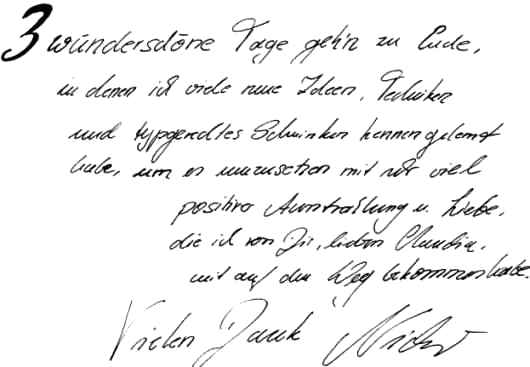 3 wunderschöne Tage geh'n zu Ende,
in denen ich viele neue Ideen, Techniken
und typgerechtes Schminken kennengelernt
habe, um es umzusetzen mit sehr viel
positiver Ausstrahlung u. Liebe,
die ich von Dir, liebe Claudia,
mit auf den Weg bekommen habe.
Vielen Dank